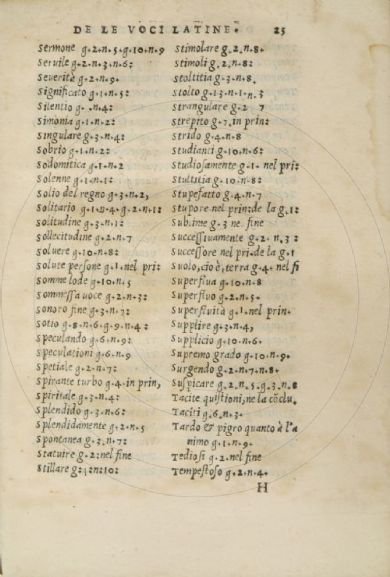 DE LE VOCI LATINE. 25
Sermone g.2.n.5.g.10.n.9
Seruile g.2.n.3.n.6:
Seuerità g.2.n.9.
Significato g.1.n.5:
Silentio g. .n.4:
Simonia g.1.n.2:
Singulare g.3.n.4:
Sobrio g.1.n.2:
Sodomitica g.1.n.2
Solenne g.1.n.1:
Solio del regno g.3.n.2,
Solitario g.1.n.4.g.2.n.1:
Solitudine g.3.n.1:
Sollecitudine g.2.n.7
Soluere g.10.n.8:
Solute persone g.1.nel pri:
Somme lode g.10.n.5
Sommessa uoce g.2.n.3:
Sonoro fine g.3.n.7:
Sotio g.8.n.6.g.9.n.4:
Speculando g.6.n.9:
Speculationi g.6.n.9
Spetiale g.2.n.7:
Spirante turbo g.4.in prin,
Spiritale g.3.n.4:
Splendido g.3.n.6:
Splendidamente g.2.n.5
Spontanea g.3.n.7:
Statuire g.2:nel fine
Stillare g:1:n:10:
Stimolare g.2.n.8.
Stimoli g.2.n.8:
Stoltitia g.3.n.8.
Stolto g.1.3.n.1.n.3
Strangulare g.2 7
Strepito g.7.in prin:
Strido g.4.n.8
Studianci g.10.n.6:
Studiosamente g.1.nel pri:
Stultitia g.10.n.8:
Stupefatto g.4.n.7
Stupore nel prin:de la g.1:
Sublime g.3 ne fine
Successiuamente g.2.n.3:
Successore nel pri:de la g.1
Suolo,cio è,terra g.4.nel fi
Superflua g.10.n.8
Superfluo g.2.n.5.
Superfluità g.1.nel prin.
Supplire g.3.n.4,
Supplicio g.10.n.6.
Supremo grado g.10.n.9.
Surgendo g.2.n.7.n.8.
Suspicare g.2.n.5.g.3.n.8
Tacite quistioni,ne la cõclu.
Taciti g.6.n.3.
Tardo & pigro quanto è l'a
nimo g.1.n.9.
Tediosi g.2.nel fine
Tempestoso g.2.n.4.
H